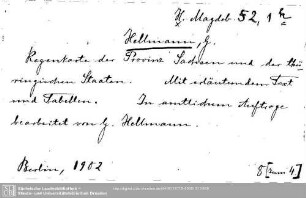 H. Magdeb. 52, 1 h
Hellmann, G.
Regenkarte der Provinz Sachsen und der thü-
ringischen Staaten. Mit erläuterndem Text
und Tabellen. In amtlichem Auftrage
bearbeitet von G. Hellmann.
Berlin, 1902
8 [num 4]
Sächsische Landesbibliothek -
Staats- und Universitätsbibliothek Dresden